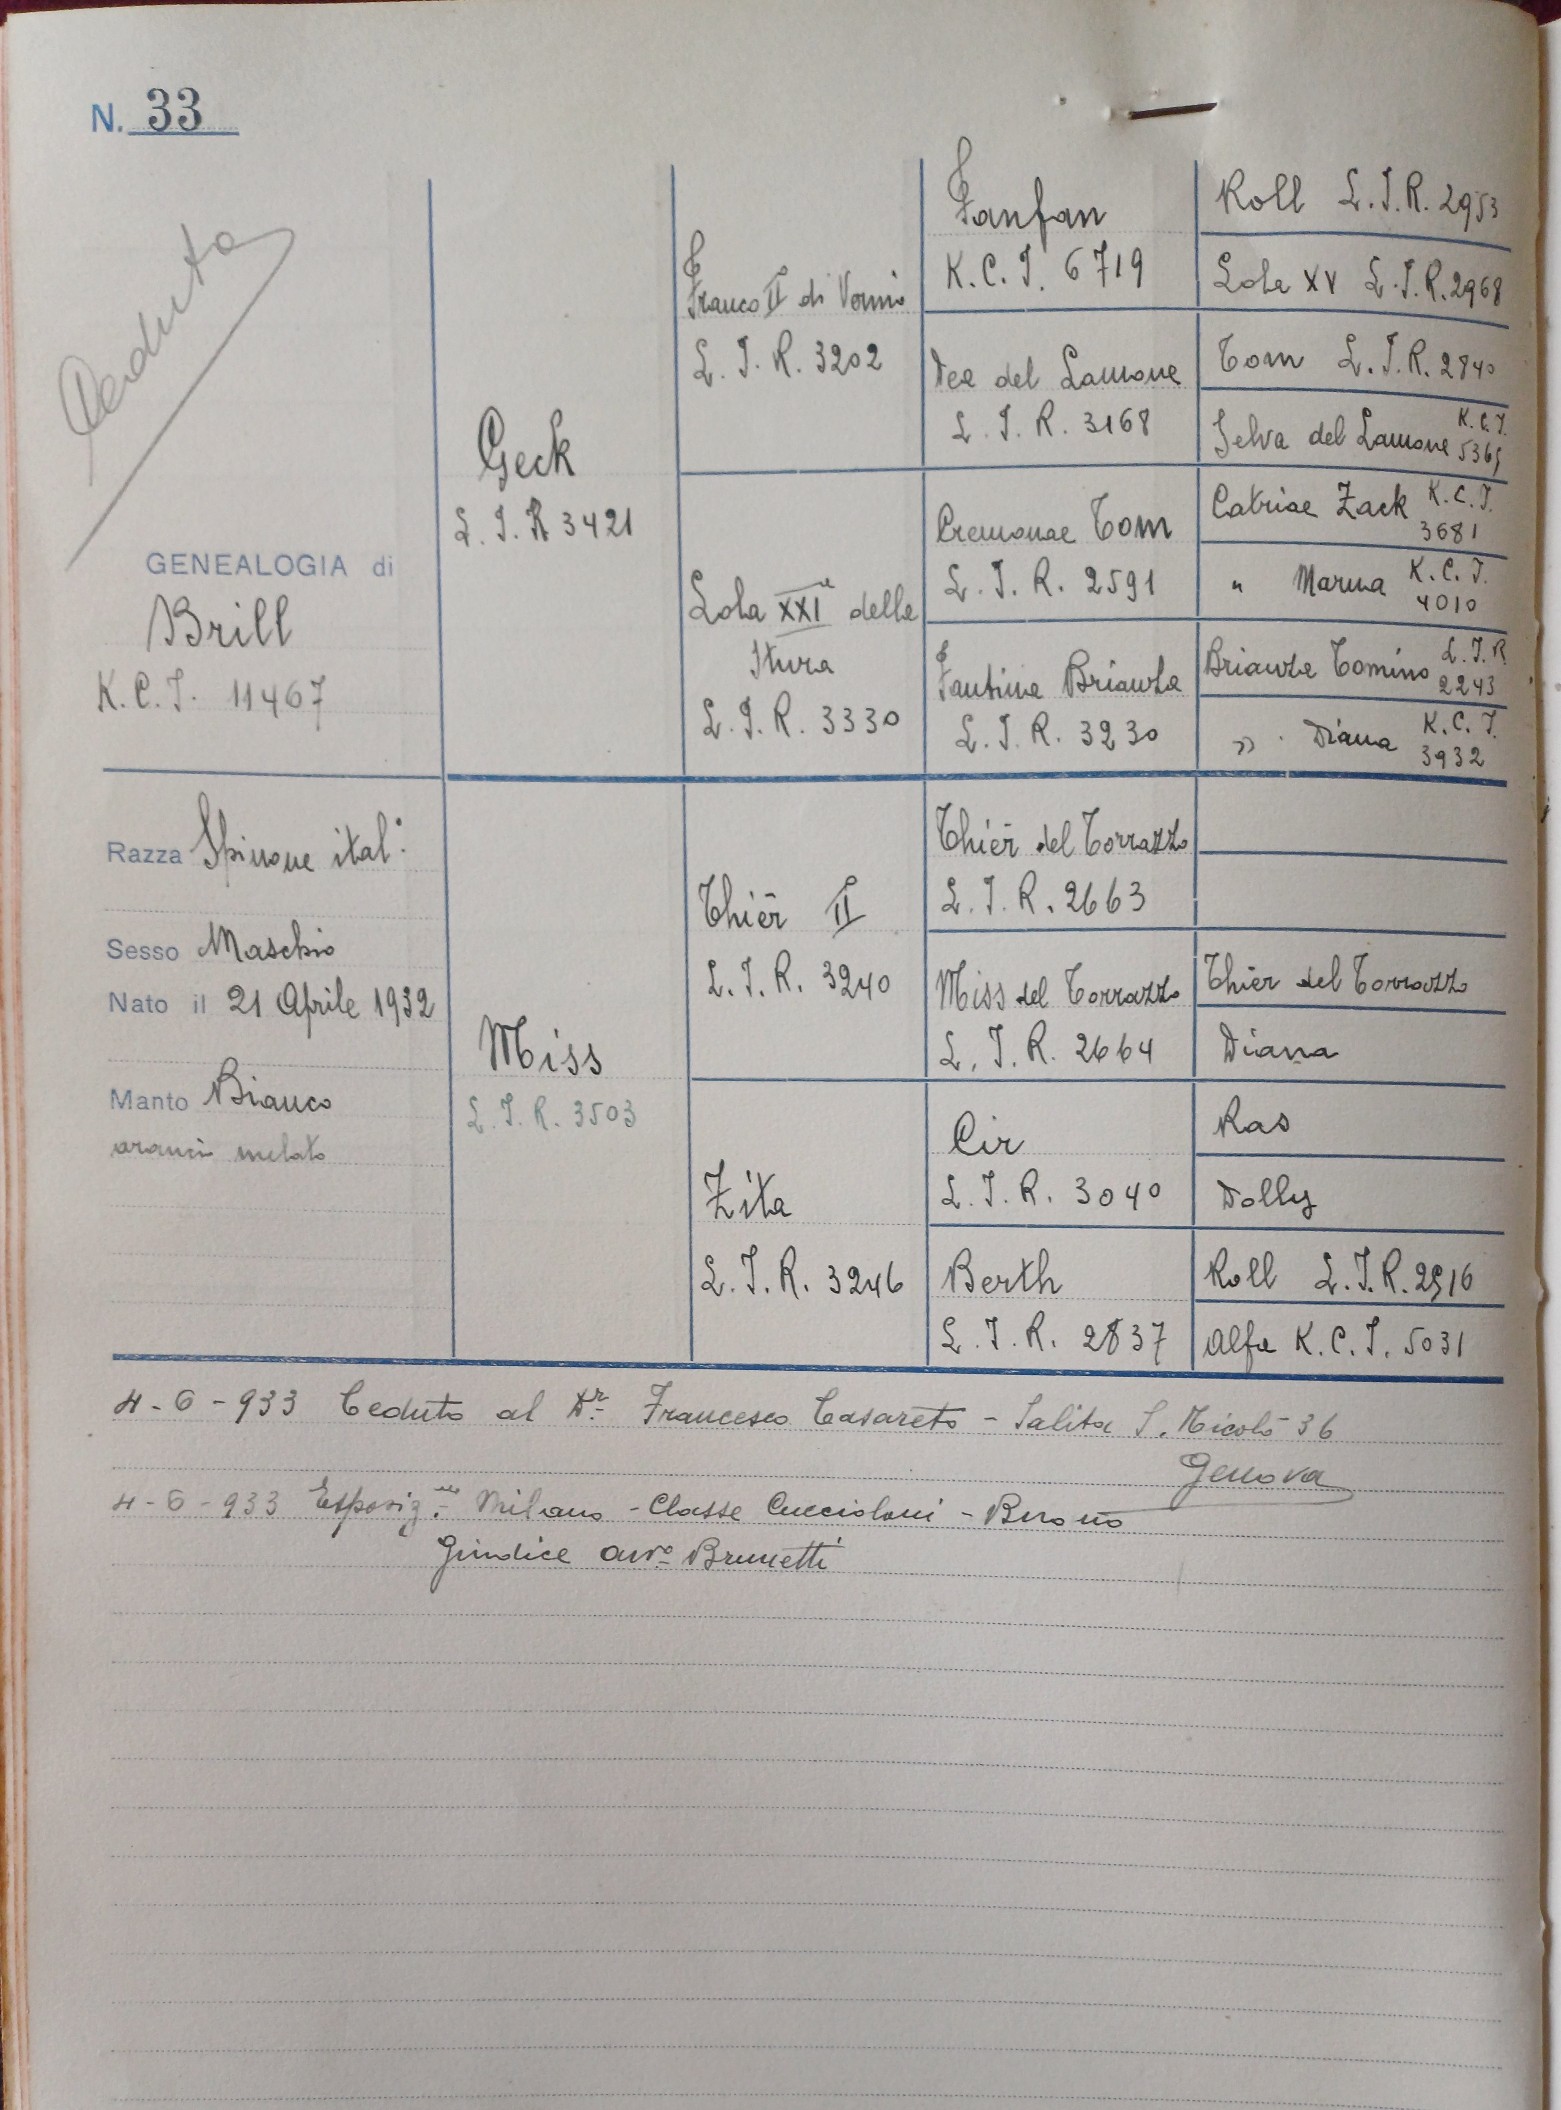 N. 33
Ceduto
GENEALOGIA di
Brill
K.C.I. 11467
Razza Spinone ital.
Sesso Maschio
Nato il 21 Aprile 1932
Manto Bianco
arancio melato
Geck
L.I.R 3421
Miss
L.I.R. 3503
Franco II° di Vornio
L.I.R. 3202
Lola XXI delle
Stura
L.I.R. 3330
Thier II°
L.I.R. 3240
Zita
L.I.R. 3246
Fanfan
K.C.I. 6719
Dea del Lamone
L.I.R. 3168
Cremonae Tom
L.I.R. 2591
Fantina Brianza
L.I.R. 3230
Thier del Torrazzo
L.I.R. 2663
Miss del Torrazzo
L.I.R. 2664
Cir
L.I.R. 3040
Berth
L.I.R. 2837
Roll L.I.R. 2953
Lola XV L.I.R. 2968
Tom L.I.R. 2840
Selva del Lamone K.C.I. 5365
Catriae Zack K.C.I. 3681
" Marna K.C.I. 4010
Brianza Tomino L.I.R. 2243
" Diana K.C.I. 3932
Thier del Torrazzo
Diana
Ras
Dolly
Roll L.I.R. 2916
Alfa K.C.I. 5031
4-6-933 Ceduto al Dr. Francesco Casareto - Salita S. Nicolò 36
Genova
4-6-933 Esposiz.ne Milano - Classe Cuccioloni - Buono
Giudice avv.° Brunetti